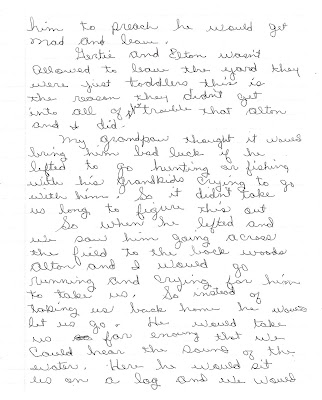 him to preach he would get
mad and leave.
Gertie and Elton wasn't
allowed to leave the yard they
were just toddlers this is
the reason they didn't get
into all of the trouble that Alton
and I did.
My grandpaw thought it would
bring him bad luck if he
lefted to go hunting or fishing
with his grandkids crying to go
with him. So it didn't take
us long to figure this out
So when he lefted and
we saw him going across
the field to the back woods
Alton and I would go
running and crying for him
to take us. So instead of
taking us back home he would
let us go. He would take
us far enough that we
could hear the sound of the
water. Here he would sit
us on a log and we would